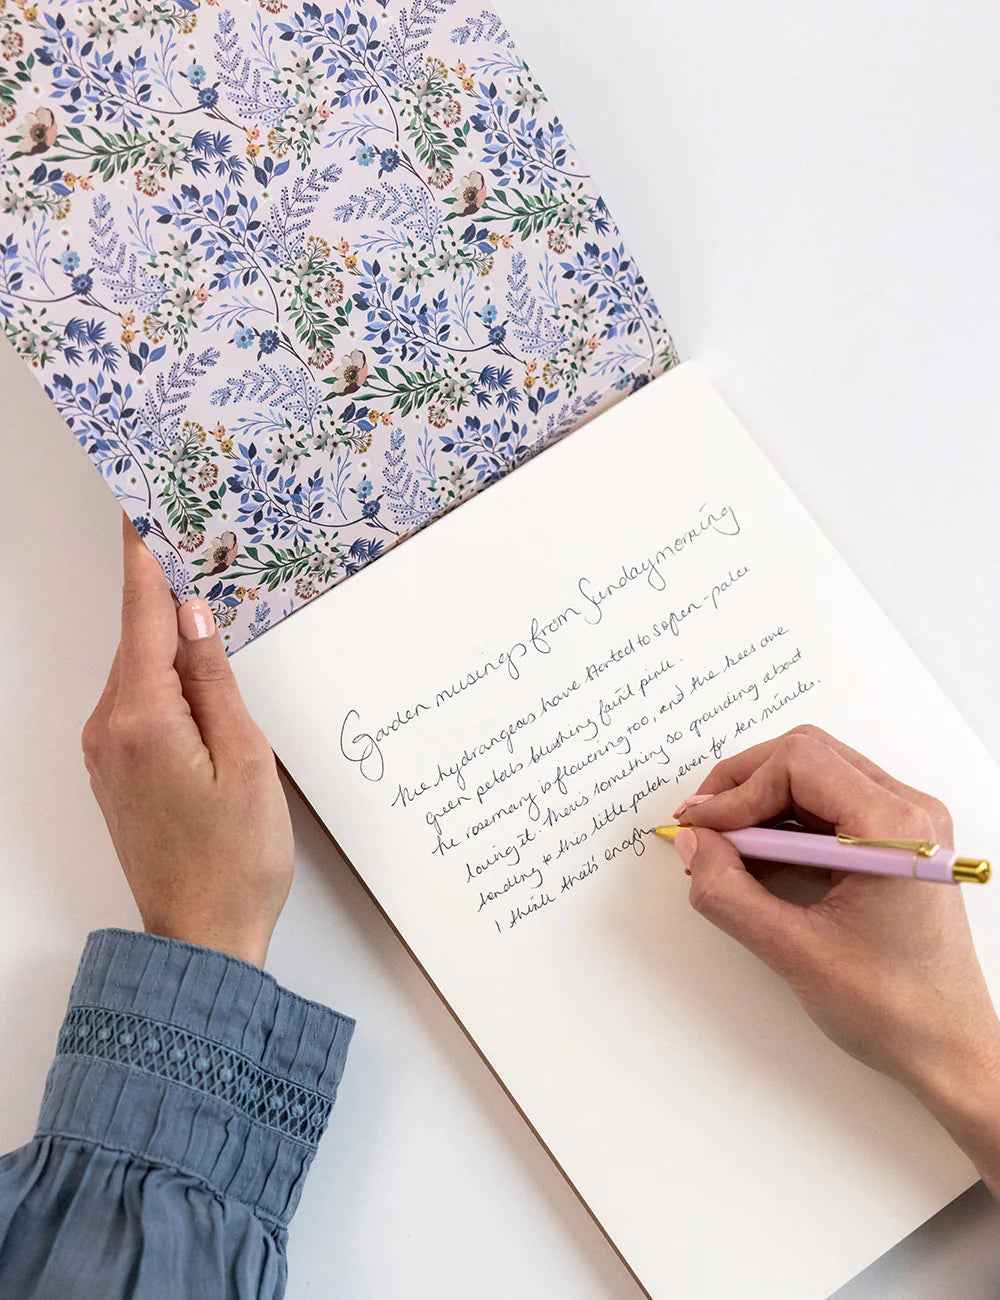 Garden musings from Sunday morning
The hydrangeas have started to soften-pale
green petals blushing faint pink.
The rosemary is flowering too, and the bees are
loving it. There's something so grounding about
tending to this little patch, even for ten minutes.
I think that's enough